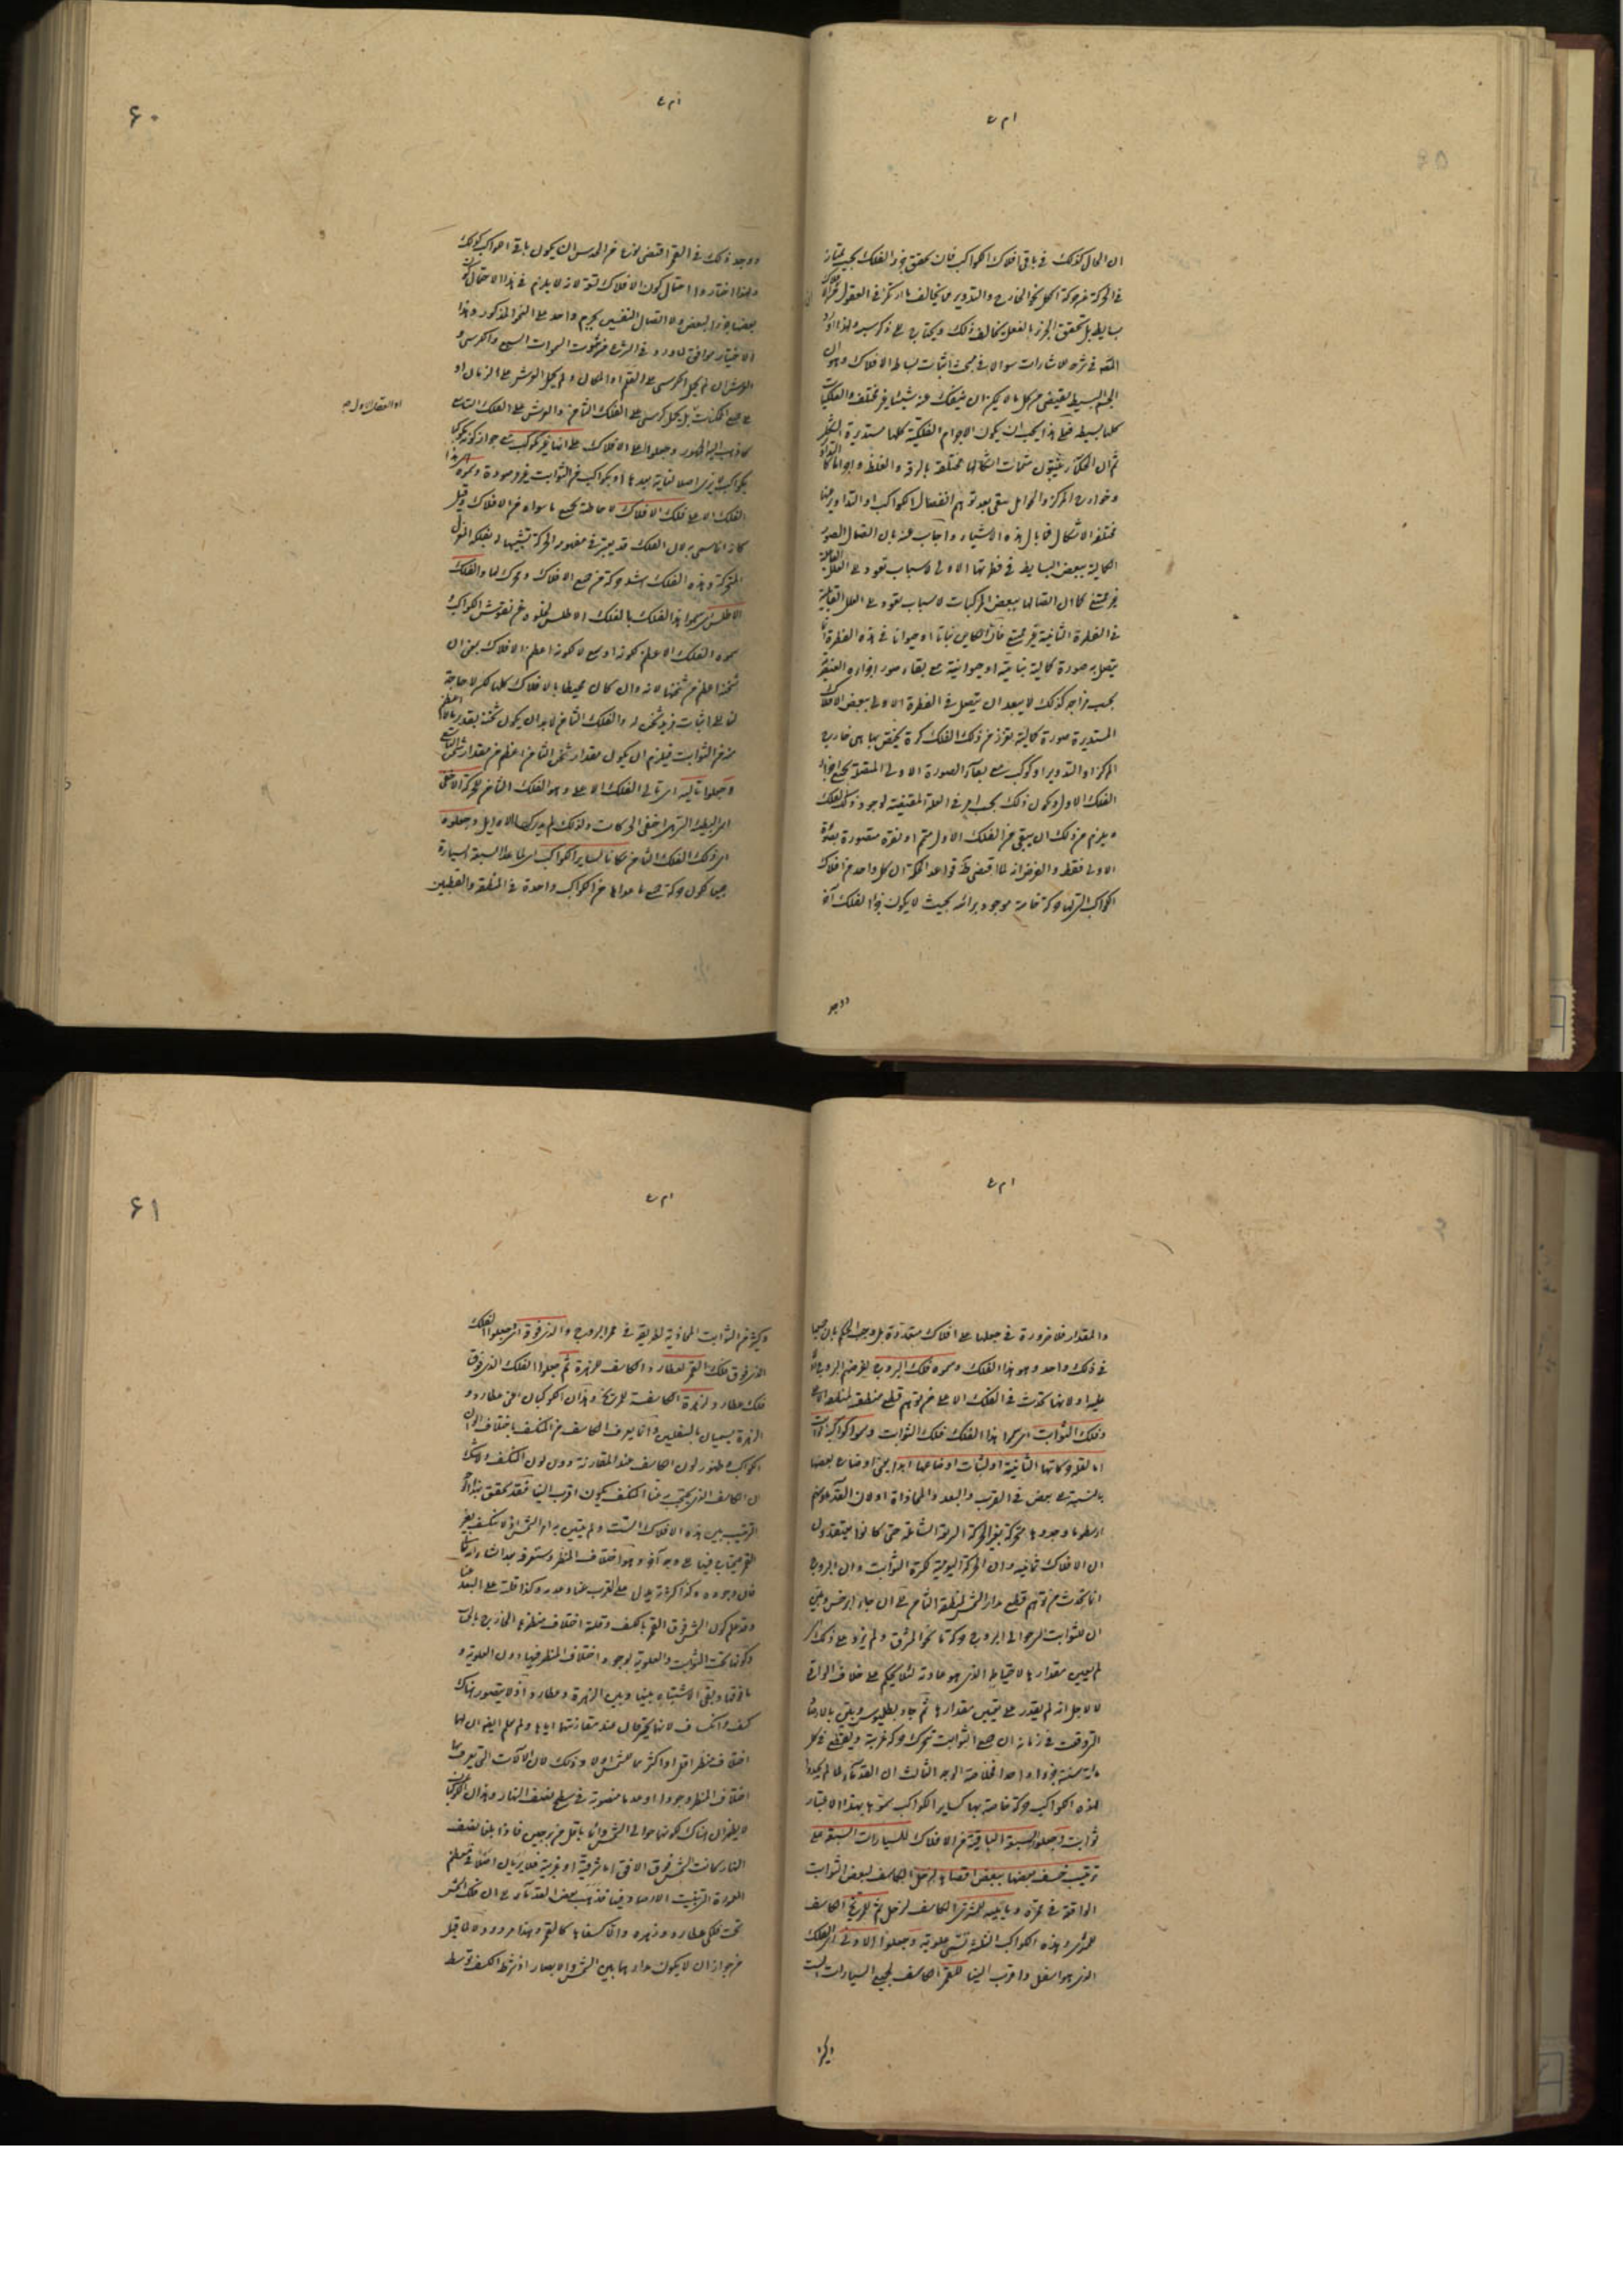 ام ت
ان الحال كذلك فى باقى افلاك الكواكب فان تحقق جزء الفلك بحيث يمتاز
فى الحركة عن حركة الكل نحو الخارج والتدوير مما يخالف ما ارتكز فى العقول من ان الافلاك
بسايط بل تحقق الجزء بالفعل يخالف ذلك ويحتاج الى
فى شرح الاشارات سوالا فى مبحث اثبات بساطة الافلاك وهو ان
الجسم البسيط يقتضى شكلا لا يمكن ان ينفك عنه شيئا غير مختلف والفلكيات
كلها بسيطه فعلى هذا يجب ان يكون الاجرام الفلكية كلها مستديرة الشكل
ثم ان الحكماء يثبتون متممات اشكالها مختلفة بالرقة والغلظ
وخوارج المراكز والحوامل يبقى بعد توهم انفصال الكواكب او التداوير عنها
مختلفة الاشكال فما بال هذه الاشياء واجاب عنه بان اتصال الصور
الكمالية ببعض البسايط فى فطرتها الاولى لاسباب تعود الى العلل الفاعلية
غير ممتنع كما ان اتصالها ببعض المركبات لاسباب تعود الى العلل القابلية
فى الفطرة الثانية غير ممتنع فان الكاين نباتا او حيوانا فى هذه الفطرة
يتصل به صورة كمالية نباتية او حيوانية مع بقاء صور اجزاءه العنصرية
بحسب مزاجه كذلك لا يبعد ان يتصل فى الفطرة الاولى ببعض الافلاك
المستديرة صورة كمالية تفرز من ذلك الفلك كرة يختص بها هى خارج
المركز او التدوير او كوكب مع بقاء الصورة الاولى المتصلة بجميع اجزاء
الفلك الاول ويكون ذلك بحسب امر فى العلة المقتضية لوجود ذلك الفلك
ويلزم من ذلك ان يبقى من الفلك الاول متمم او نقرة متصورة بصورة
الاولى فقط والغرض انه لما اقتضى قواعد الحكمة ان كل واحد من افلاك
الكواكب التى لها حركة خاصة موجود براسه بحيث لا يكون جزءا لفلك آخر
ووجد
ام ت
۶۰
ووجد ذلك فى القمر اقتضى نوعا من الحدس ان يكون باقى الكواكب كذلك
ولهذا اختاروا احتمال كون الافلاك تسعة لانه لا يلزم فى هذا الاحتمال كون
بعضها جزءا لبعض ولا اتصال النفسين بجرم واحد على النحو المذكور وهذا
الاختيار موافق لما ورد فى الشرع من ثبوت السموات السبع والكرسى و
العرش ان لم يحمل الكرسى على العلم او المكان ولم يحمل العرش على الزمان او
على جميع الممكنات بل يحمل كرسى على الفلك الثامن والعرش على الفلك التاسع
او العقل الاول
كما ذهب اليه الجمهور وجعلوا اعلى الافلاك على انها غير مكوكب مع جواز كونه مكوكبا
بكواكب لا يرى اصلا لغاية بعدها او بكواكب من الثوابت غير مرصودة وسموه بهذا
الفلك الاعلى فلك الافلاك لاحاطته بجميع ما سواه من الافلاك وقيل
كانه انما سمى به لان الفلك قد يعتبر فى مفهومه الحركة تشبيها له بفلكة المغزل
المتحركة وهذا الفلك اشد حركة من جميع الافلاك ومحرك لها والفلك
الاطلس سموا هذا الفلك بالفلك الاطلس لخلوه عن نقوش الكواكب
سموه الفلك الاعظم لكونه اوسع لا لكونه اعظم الافلاك بمعنى ان
ثخنه اعظم من ثخنها لانه وان كان محيطا بالافلاك كلها لكن لا حاجة
لنا الى اثبات مزيد ثخن له والفلك الثامن لابد ان يكون ثخنه بقدر ما هو اعظم
منه من الثوابت فيلزم ان يكون مقدار ثخن الثامن اعظم من مقدار ثخن التاسع
وجعلوا تاليه اى تالى الفلك الاعلى وهو الفلك الثامن للحركة الاخفى
اى البطيئة التى هى اخفى الحركات ولذلك لم يدركها الاوايل وجعلوه
اى ذلك الفلك الثامن مكانا لساير الكواكب اى لما عدا السبعة السيارة
حيث تكون حركة جميع ما عداها من الكواكب واحدة فى المنطقة والقطبين
ام ت
والمقدار فلا ضرورة فى جعلها على افلاك متعددة بل وجب الحكم بان جميعها
فى فلك واحد وهو هذا الفلك وسموه فلك البروج لفرضهم البروج اولا
عليه او لانها تحدث فى الفلك الاعلى من توهم قطع منطقته لمنطقة الاعلى
وفلك الثوابت اى سموا هذا الفلك فلك الثوابت وسموا كواكبه ثوابت
اما لقلة حركاتها الثانية او لثبات اوضاعها ابدا يعنى اوضاع بعضها
بالنسبة الى بعض فى القرب والبعد والمحاذاة او لان القدماء
ارسطو ما وجدوها متحركة بغير الحركة السريعة الشاملة حتى كانوا يعتقدون
ان الافلاك ثمانية وان الحركة اليومية لكرة الثوابت وان البروج
انما تحدث من توهم قطع مدار الشمس لمنطقة الثامن الى ان جاء ابرخس وظن
ان للثوابت التى حوالى البروج حركة ما نحو المشرق ولم يزد على ذلك
لم يعين مقدارها لاحتياطه الذى هو عادته لئلا يحكم على خلاف الواقع
لا لاجل انه لم يقدر على تعيين مقدارها ثم جاء بطليموس وبين بالارصاد
التى وقعت فى زمانه ان جميع الثوابت تتحرك حركة غربية ويقطع فى كل
مائة سنة جزءا واحدا فخلاصة الوجه الثالث ان القدماء لما لم يجدوا
لهذه الكواكب حركة خاصة بها كساير الكواكب سموها بهذا الاعتبار
ثوابت وجعلوا السبعة الباقية من الافلاك للسيارات السبعة على
ترتيب خسف بعضها ببعض اقصاها لزحل الكاسف لبعض الثوابت
الواقعة فى ممره وما يليه للمشترى الكاسف لزحل ثم للمريخ الكاسف
للمشترى وهذه الكواكب الثلثة تسمى علوية وجعلوا الادنى اى الفلك
الذى هو اسفل واقرب الينا للقمر الكاسف لجميع السيارات الست
ام ت
۶۱
وكثير من الثوابت المحاذية لطريقه فى ممر البروج والذى فوقه اى جعلوا الفلك
الذى فوق فلك القمر لعطارد الكاسف للزهرة ثم جعلوا الفلك الذى فوق
فلك عطارد لزهرة الكاسفة للمريخ وهذان الكوكبان اعنى عطارد و
الزهرة يسميان بالسفليين وانما يعرف الكاسف من المنكسف باختلاف الوان
الكواكب وظهور لون الكاسف عند المقارنة دون لون المنكسف ولا شك
ان الكاسف الذى يحتجب به عنا المنكسف يكون اقرب الينا فقد تحقق بهذا الوجه
الترتيب بين هذه الافلاك الستة ولم يتبين به امر الشمس اذ لا ينكسف بغير
القمر فيحتاج فيها الى وجه آخر وهو اختلاف المنظر وستعرفه
فان وجوده وكذا كثرته يدل على القرب منا وعدمه وكذا قلته على البعد عنا
وقد علم كون الشمس فوق القمر بالكسف وقلة اختلاف منظرها
وكونها تحت الثوابت والعلوية بوجود اختلاف المنظر فيها دون العلوية و
ما فوقها وبقى الاشتباه بينها وبين الزهرة وعطارد اذ لا يتصور هناك
كسف وانكساف لانهما يحترقان عند مقارنتهما اياها ولم يعلم ايضا ان لهما
اختلاف منظر اقل او اكثر مما للشمس او لا وذلك لان الآلات التى يعرف بها
اختلاف المنظر وجودا وعدما منصوبة فى سطح نصف النهار وهذان الكوكبان
لا يظهران هناك لكونهما حوالى الشمس دائما باقل من برجين فاذا بلغا نصف
النهار كانت الشمس فوق الافق اما شرقية او غربية فلا يريان اصلا
التى بنيت الارصاد فيها فذهب بعض القدماء الى ان فلك الشمس
تحت فلكى عطارد وزهرة وانها كسفها كالقمر وهذا مردود لما قيل
من جواز ان لا يكون مدارهما بين الشمس والابصار اذ شرط الكسف توسط